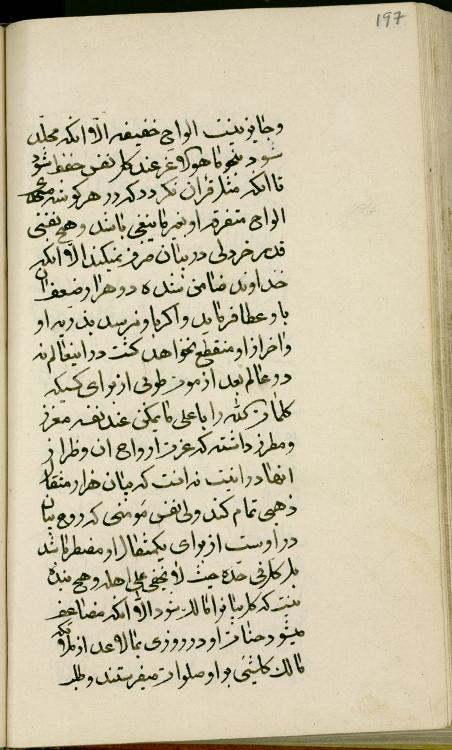 197
وجایز نیست الواح خفیفه الا آنکه مجلد
شود بنحو ما هو الاعز عند کل نفس حفظ شود
تا آنکه مثل قران نگردد که در هر گوشه
الواح متفرقه او بغیر ما ینبغی باشد و هیچ نفسی
قدر خردلی در بیان صرف نمیکند الا آنکه
خداوند ضامن شده دو هزار ضعف آن
باو عطا فرماید و اگر باو نرسد بذریه او
و اخر از او منقطع نخواهد گشت در این عالم نه
در عالم بعد از موت طوبی از برای کسیکه
کلمات الله را باعلی ما یمکن عند نفسه معزز
و مطرز داشته که عزت ارواح ان و طراز
انها در انست نه انست که بیان هزار مثقال
ذهبی تمام کند ولی نفس مومنی که روح بیان
در اوست از برای یکمثقال او مضطر باشد
بل کل فی حده حیث لا یخفی علی اهله و هیچ بنده
نیست که کل بیانرا مالک شود الا آنکه مضاعف
میشود حسنات او و در روزی بما لا عدل
مالک کلشیئی بر او صلوات میفرستند و طلب